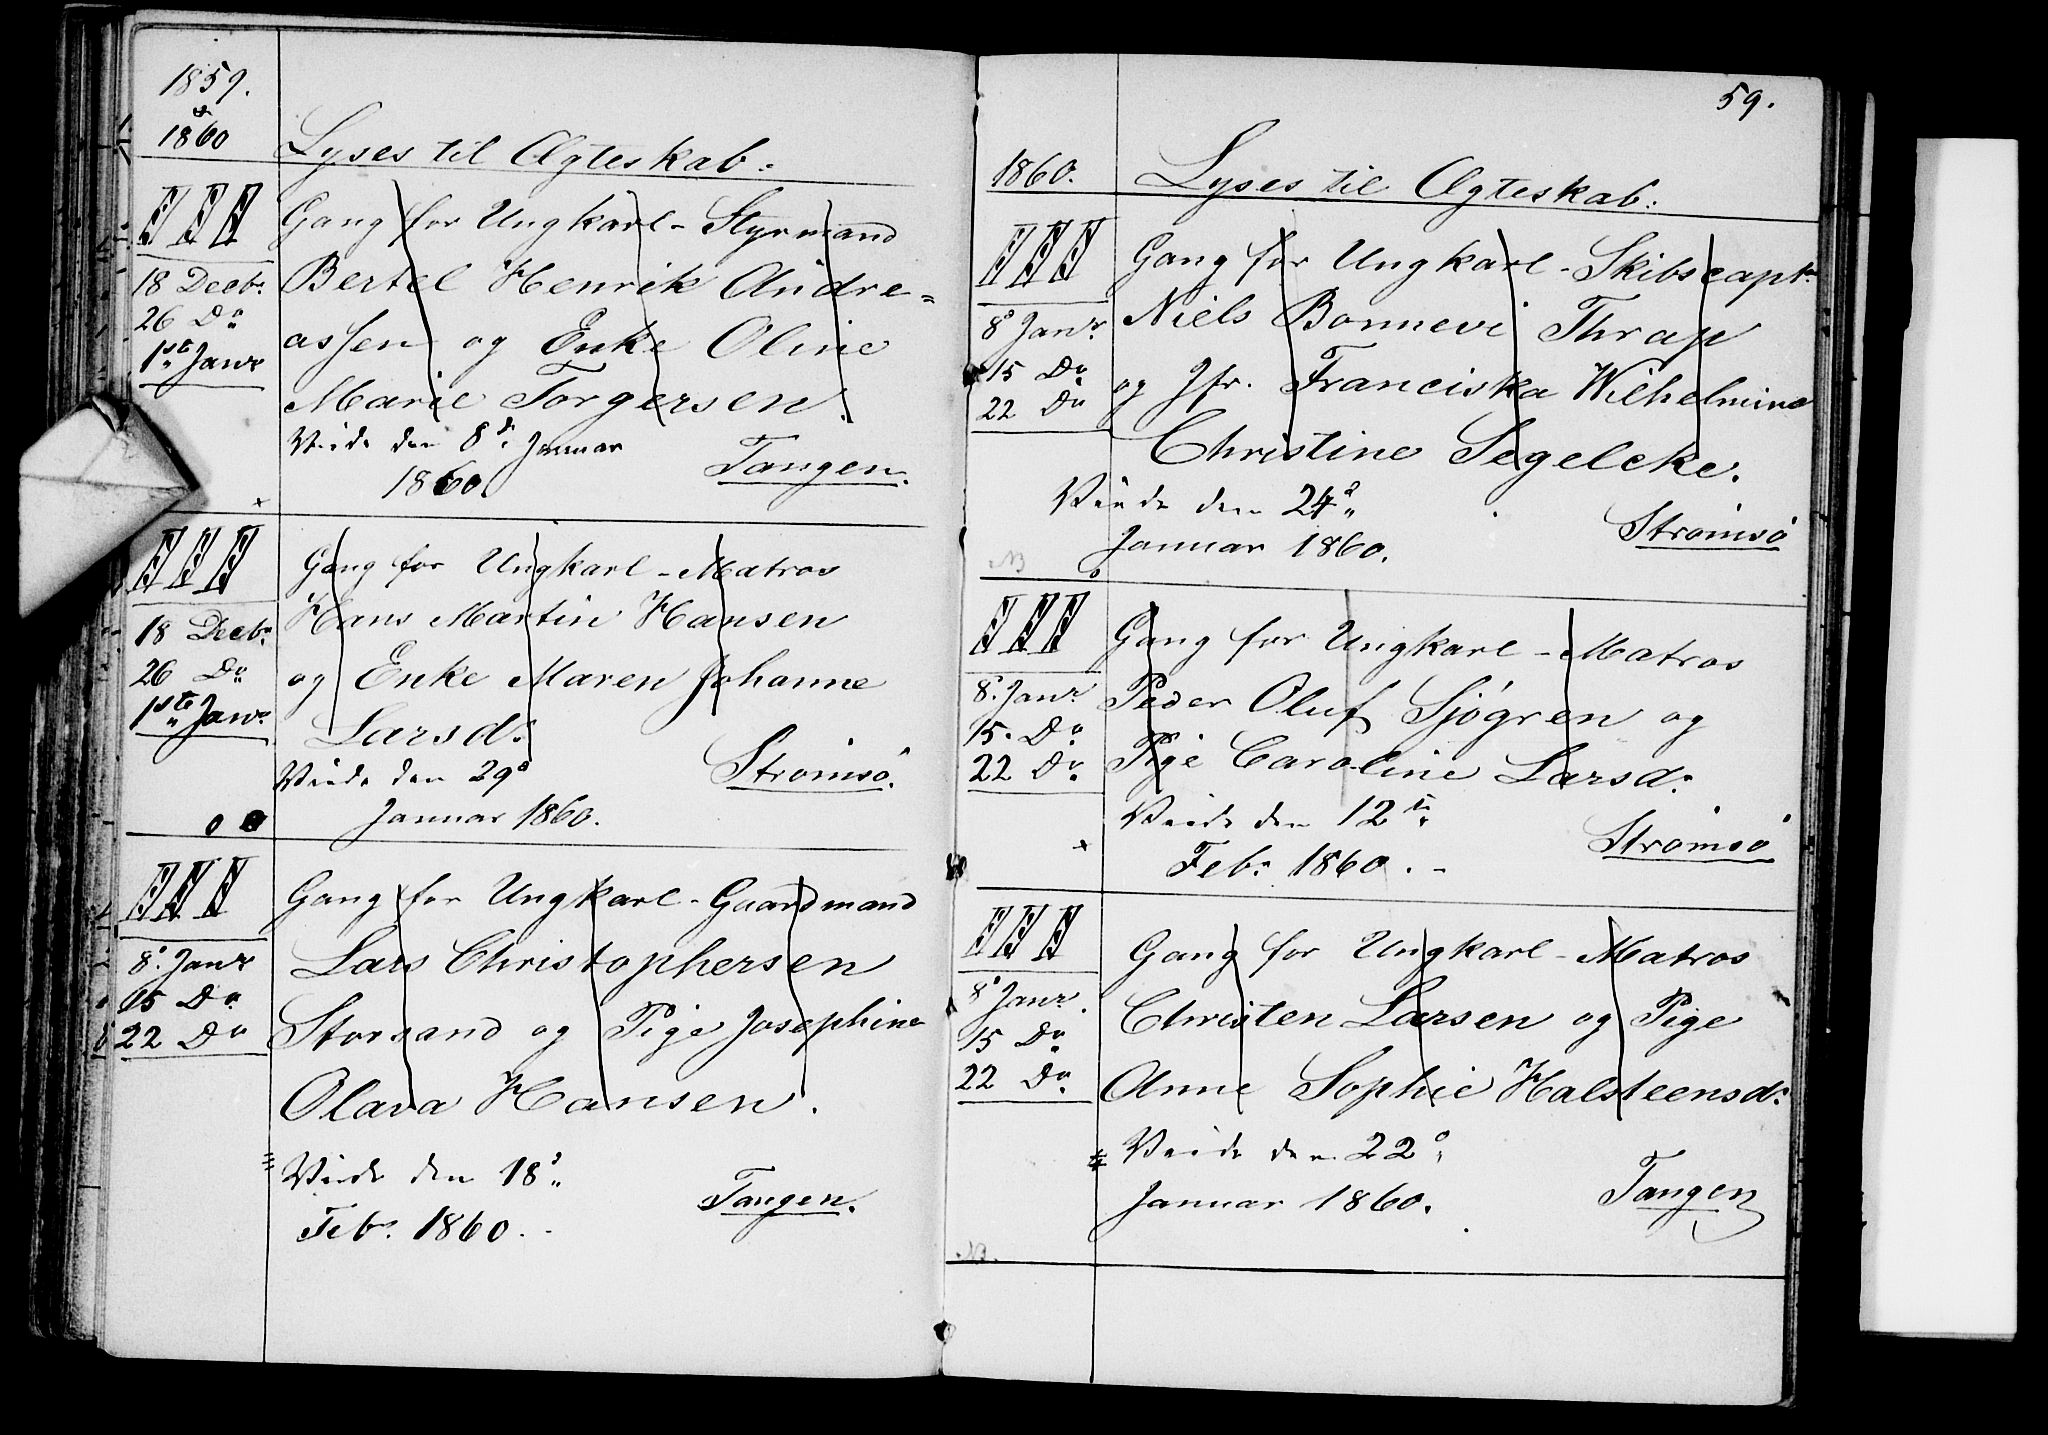 1859.
&
1860
Lyses til Ægteskab:
III
18 Decbr.
26 Do
1ste Janr
Gang for Ungkarl - Styrmand
Bertel Henrik Andre=
assen og Enke Oline
Marie Torgersen.
Viede den 8de Januar
1860.
Tangen.
III
18 Decbr.
26 Do
1ste Janr.
Gang for Ungkarl - Matros
Hans Martin Hansen
og Enke Maren Johanne
Larsd:
Viede den 29d
Januar 1860.
Strömsö.
III
8d. Janr
15 Do
22 Do
Gang for Ungkarl - Gaardmand
Lars Christophersen
Storsand og Pige Josephine
Olava Hansen.
Viede den 18d
Febr. 1860.
Tangen.
59.
1860.
Lyses til Ægteskab:
III
8d Janr.
15 Do
22 Do
Gang for Ungkarl - Skibscaptn
Niels Bonnevi Thrap
og Jfr. Franciska Wilhelmine
Christine Segelcke.
Viede den 24d
Januar 1860.
Strömsö
NB
III
8d. Janr
15. Do
22 Do
Gang for Ungkarl - Matros
Peder Oluf Sjögren og
Pige Caroline Larsd:
Viede den 12te
Febr. 1860. -
Strömsö
III
8d Janr.
15 Do
22 Do
Gang for Ungkarl - Matros
Christen Larsen og Pige
Anne Sophie Halsteensd:
Viede den 22d
Januar 1860.
Tangen
NB.